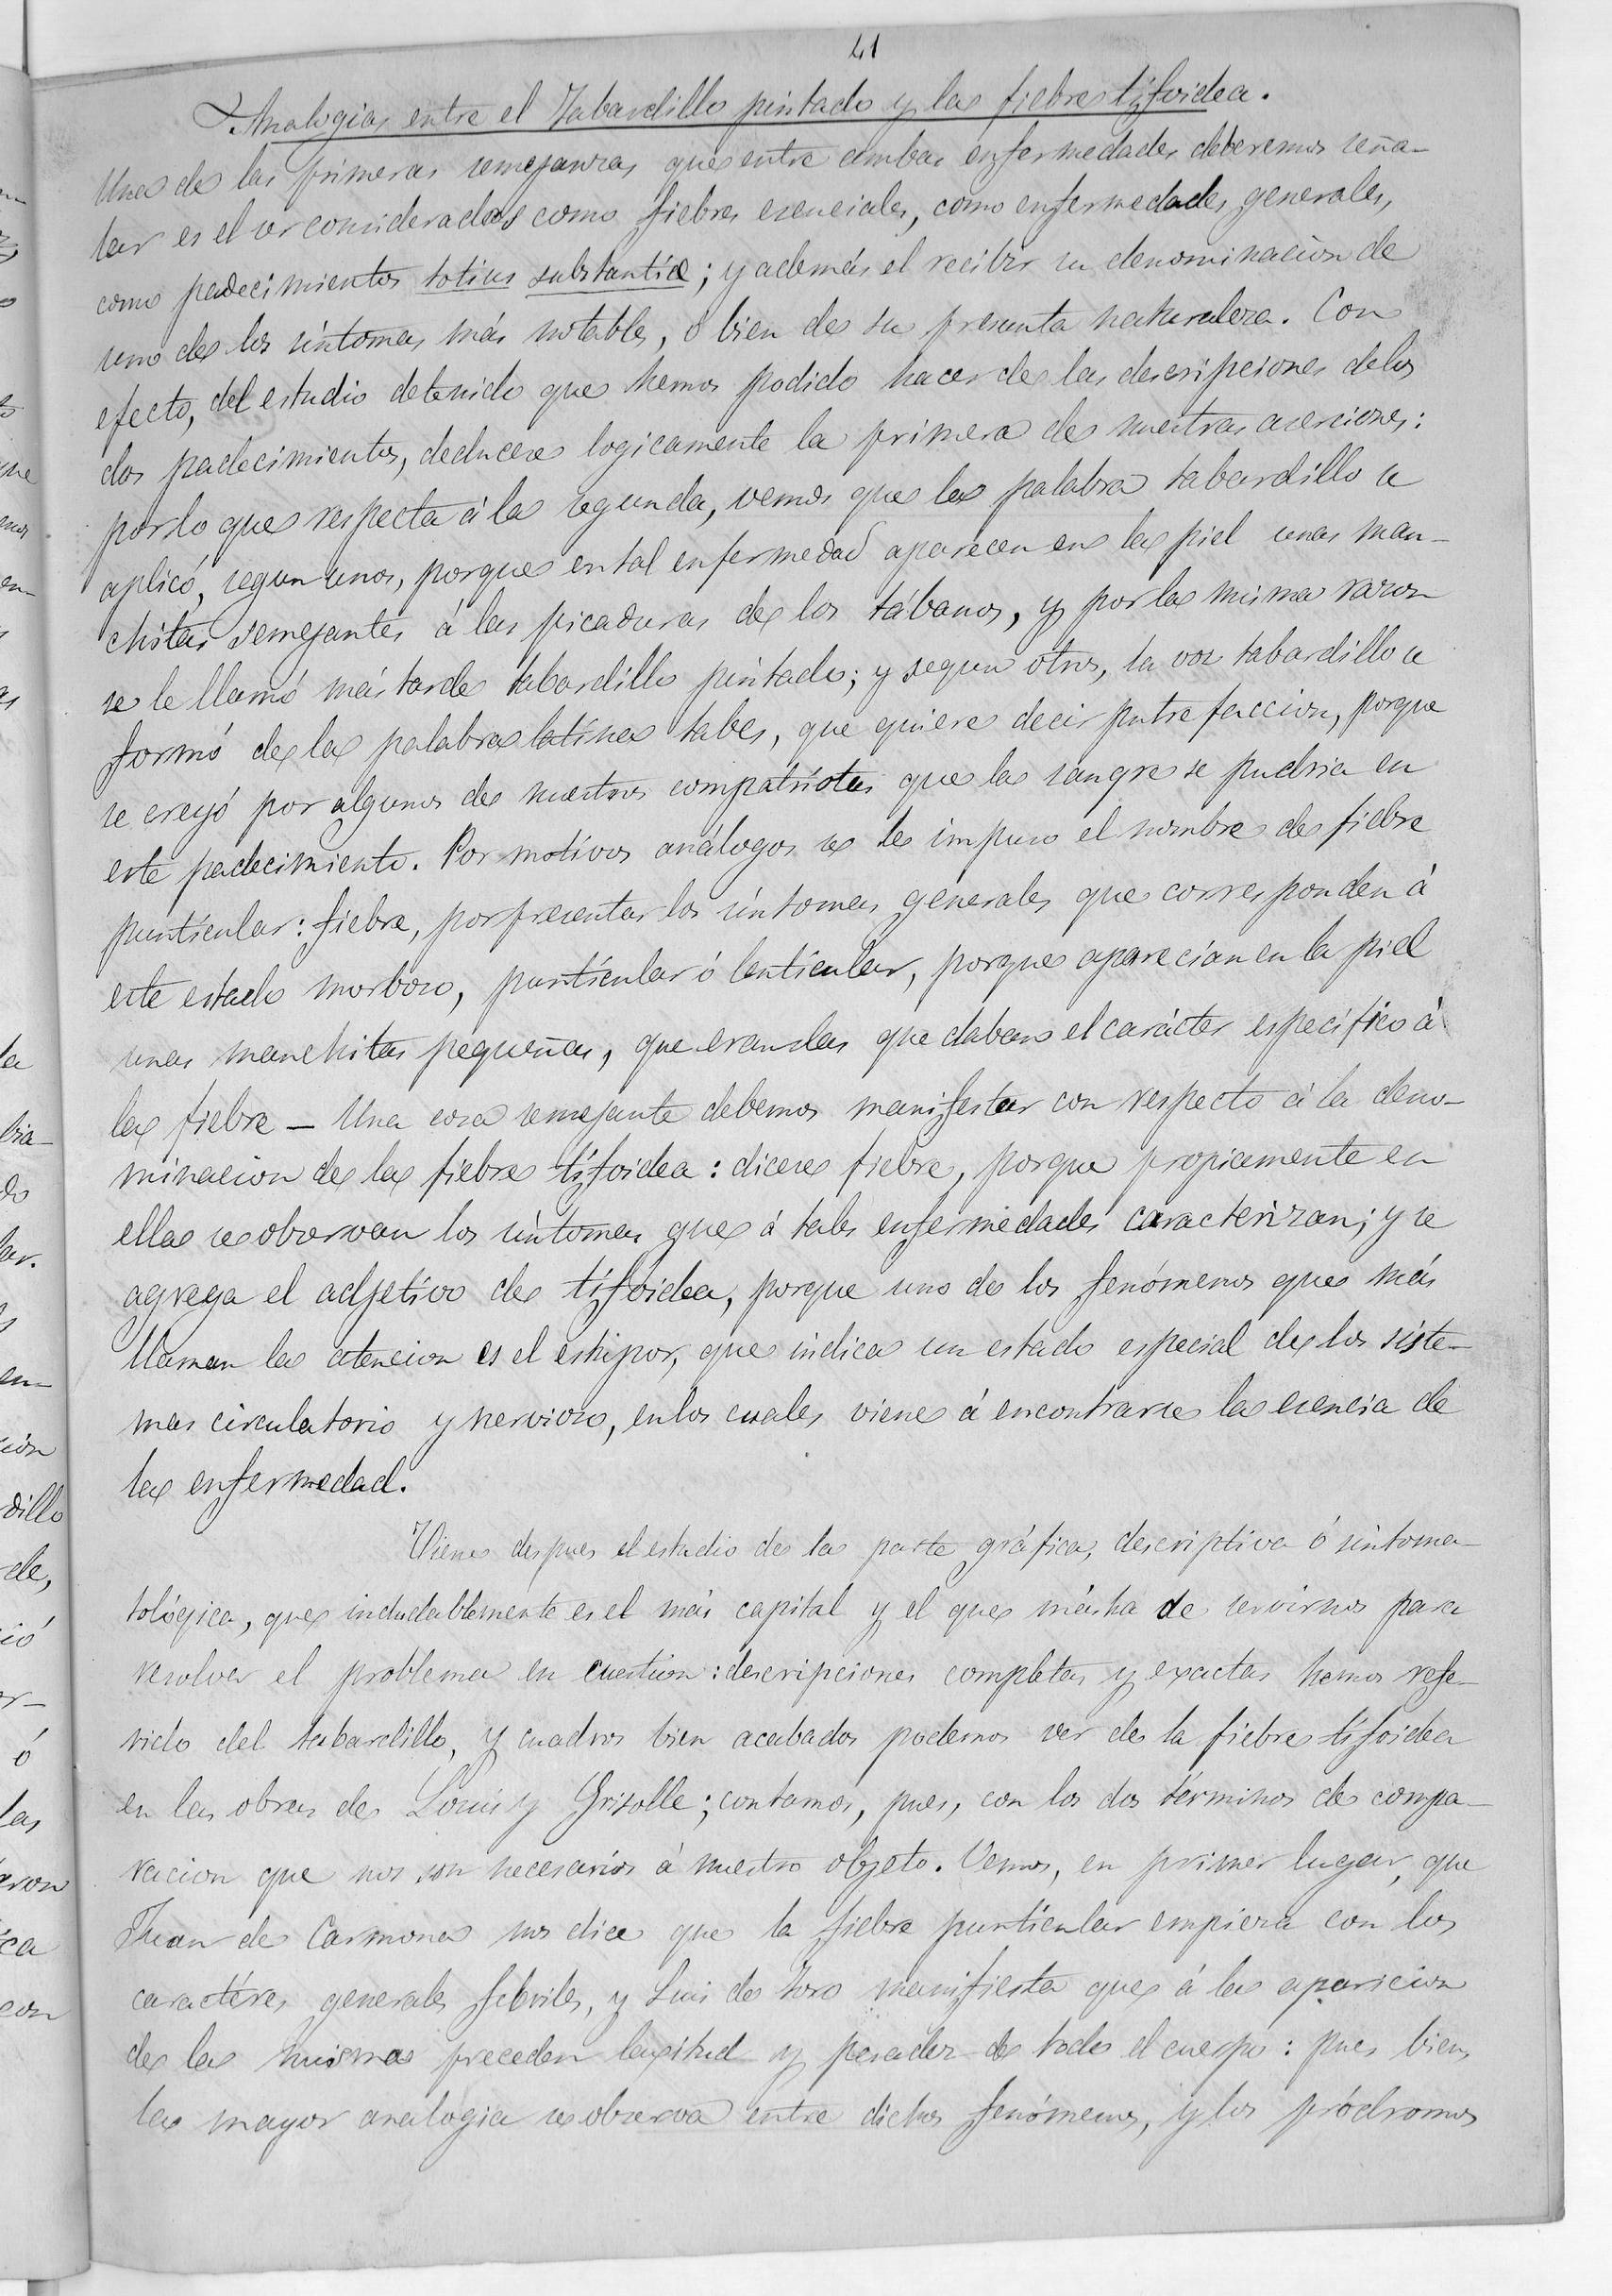 41
Analogias entre el Tabardillo pintado y la fiebre tifoidea.
Una de las primeras semejanzas que entre ambas enfermedades deberemos seña-
lar es el ser consideradas como fiebres esenciales, como enfermedades generales,
como padecimientos totius substantiæ; y además el recibir su denominacion de
uno de los síntomas más notables, ó bien de su presunta naturaleza. Con
efecto, del estudio detenido que hemos podido hacer de las descripciones de los
dos padecimientos, dedúcese logicamente la primera de nuestras aserciones:
por lo que respecta á la segunda, vemos que la palabra tabardillo se
aplicó, segun unos, porque en tal enfermedad aparecen en la piel unas man-
chitas semejantes á las picaduras de los tábanos, y por la misma razon
se le llamó más tarde tabardillo pintado; y segun otros, la voz tabardillo se
formó de la palabra latina tabes, que quiere decir putrefaccion, porque
se creyó por algunos de nuestros compatriotas que la sangre se pudria en
este padecimiento. Por motivos análogos se le impuso el nombre de fiebre
punticular: fiebre, por presentar los síntomas generales que corresponden á
este estado morboso, punticular ó lenticular, porque aparecian en la piel
unas manchitas pequeñas, que eran las que daban el carácter específico á
la fiebre — Una cosa semejante debemos manifestar con respecto á la deno-
minacion de la fiebre tifoidea: dícese fiebre, porque propiamente en
ella se observan los síntomas que á tales enfermedades caracterizan; y se
agrega el adjetivo de tifoidea, porque uno de los fenómenos que más
llaman la atencion es el estupor, que indica un estado especial de los siste-
mas circulatorio y nervioso, en los cuales viene á encontrarse la esencia de
la enfermedad.
Viene despues el estudio de la parte gráfica, descriptiva ó sintoma-
tológica, que indudablemente es el más capital y el que más ha de servirnos para
resolver el problema en cuestion: descripciones completas y exactas hemos refe-
rido del tabardillo, y cuadros bien acabados podemos ver de la fiebre tifoidea
en las obras de Louis y Grisolle; contamos, pues, con los dos términos de compa-
racion que nos son necesarios á nuestro objeto. Vemos, en primer lugar, que
Juan de Carmona nos dice que la fiebre punticular empieza con los
caractéres generales febriles, y Luis de Toro manifiesta que á la aparicion
de la misma preceden laxitud y pesadez de todo el cuerpo: pues bien,
la mayor analogia se observa entre dichos fenómenos, y los pródromos